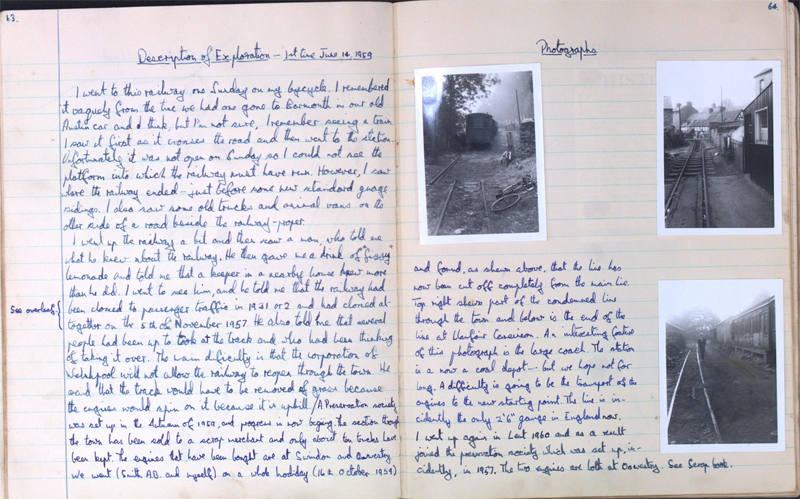 63.
Description of Exploration – 1st time June 14, 1959
I went to this railway one Sunday on my bycycle. I remembered
it vaguely from the time we had once gone to Barmonth in our old
Austin car and I think, but I'm not sure, I remember seeing a train.
I saw it first as it crosses the road and then went to the station.
Unfortunately it was not open on Sunday so I could not see the
platform into which the railway must have run. However, I saw
where the railway ended – just before some new standard guage
sidings. I also saw some old trucks and animal vans on the
other side of a road beside the railway-proper.
I went up the railway a bit and then saw a man, who told me
what he knew about the railway. He then gave me a drink of "fussy"
lemonade and told me that a keeper in a nearby house knew more
than he did. I went to see him, and he told me that the railway had
been closed to passenger traffic in 1931 or 2 and had closed al-
See overleaf {
together on the 5th of November 1957. He also told me that several
people had been up to look at the track and who had been thinking
of taking it over. The main dificulty is that the corporation of
Welshpool will not allow the railway to reopen through the town. He
said that the track would have to be removed of grass because
the engines would spin on it because it is uphill / A Preservation society
was set up in the Autumn of 1959, and progress is now begining. The section though
the town has been sold to a scrap merchant and only about ten trucks have
been kept. The engines that have been bought are at Swindon and Oswestry
We went (Smith A.B. and myself) on a whole holiday (16th October 1959)
64.
Photographs
and found, as shewn above, that the line has
now been cut off completely from the main line.
Top right shews part of the condemned line
through the town and below is the end of the
line at Llanfair Caereinion. An interesting feature
of this photograph is the large coach. The station
is a now a coal depot – but we hope not for
long. A difficulty is going to be the transport of the
engines to the new starting point. The line is in-
cidently the only 2'6" gauge in England now.
I went up again in Lent 1960 and as a result
joined the preservation society which was set up, in-
cidently, in 1957. The two engines are both at Oswestry. See Scrap book.